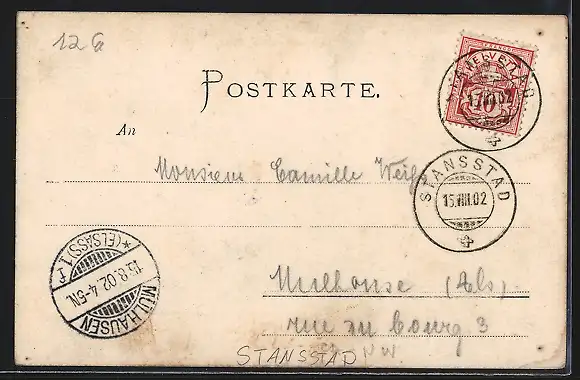 12 G
POSTKARTE.
HELVETIA
10
STANSSTAD
17.VIII.02
An
Monsieur Camille Weiss
STANSSTAD
15.VIII.02
MÜLHAUSEN
*(ELSASS) 1 f
15.8.02.4-5N.
Mulhouse (Als)
rue du bourg 3
STANSSTAD NW